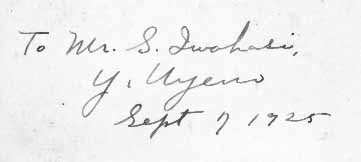 To Mr. S. Iwahasi,
Y. Uyeno
Sept 7 1925